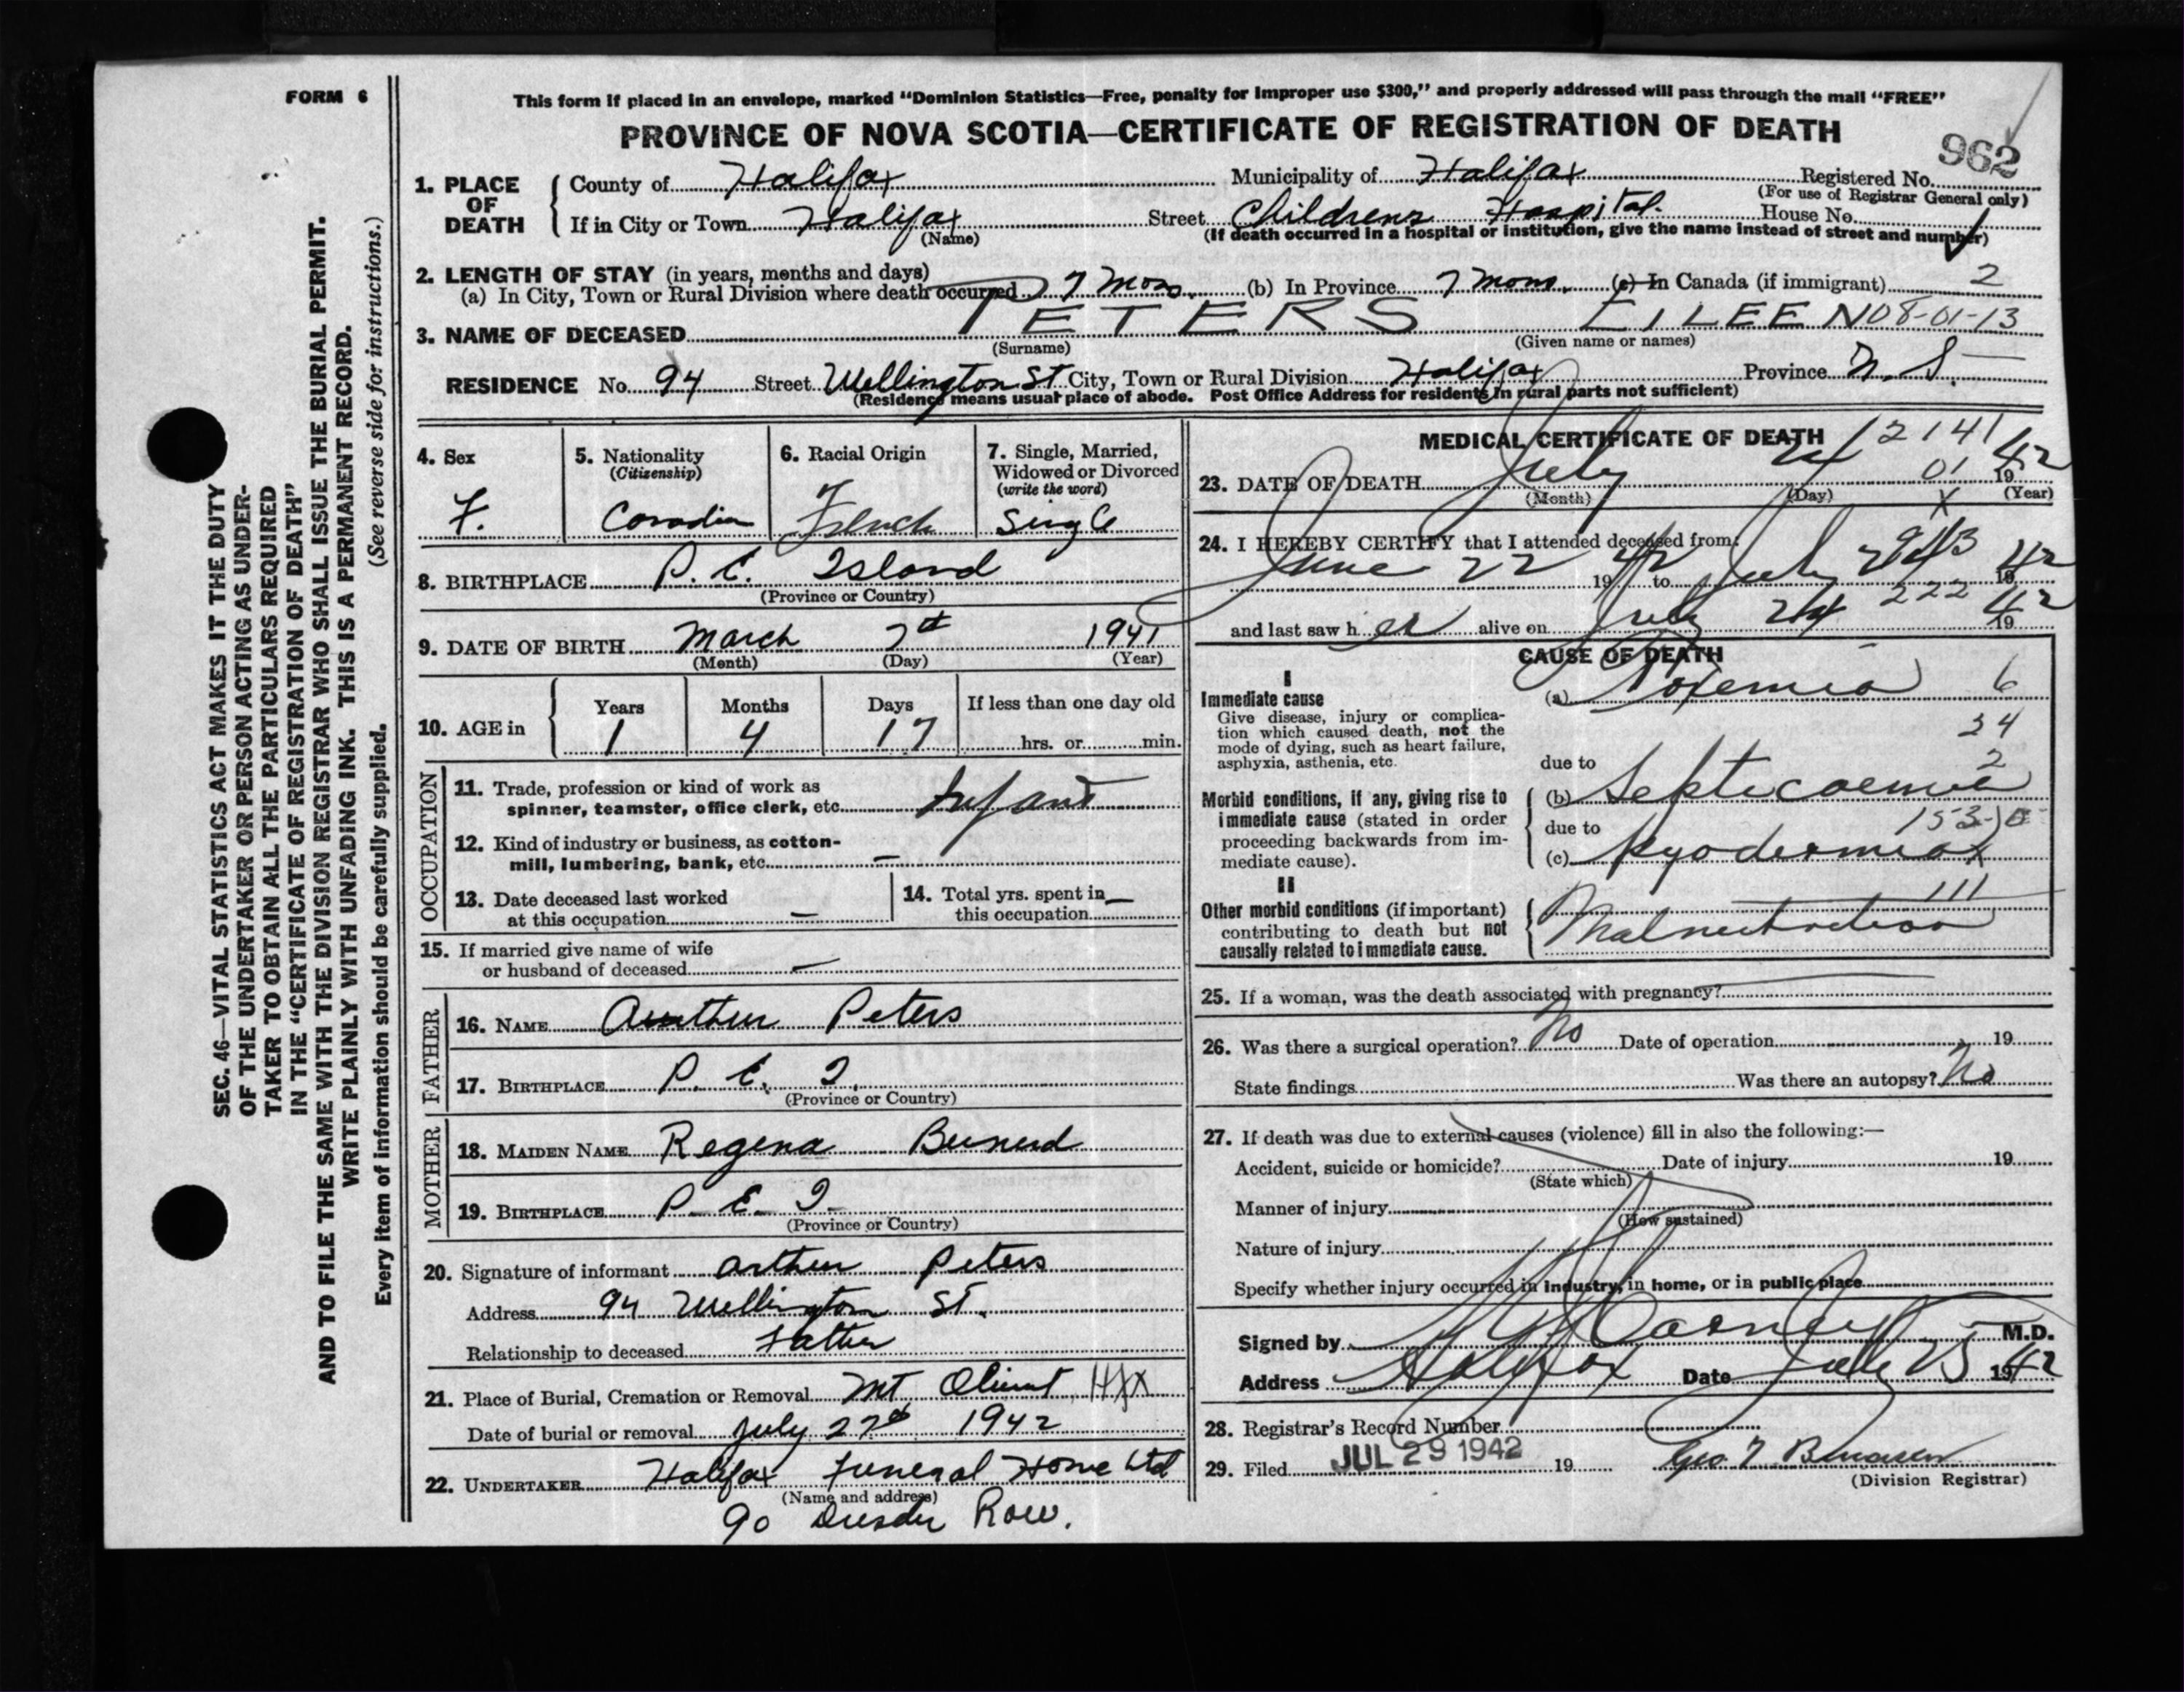 FORM 6
This form if placed in an envelope, marked “Dominion Statistics—Free, penalty for improper use $300,” and properly addressed will pass through the mail “FREE”
PROVINCE OF NOVA SCOTIA—CERTIFICATE OF REGISTRATION OF DEATH
962
1. PLACE OF DEATH County of Halifax Municipality of Halifax Registered No.
(For use of Registrar General only)
If in City or Town Halifax Street Childrens Hospital House No.
(Name) (If death occurred in a hospital or institution, give the name instead of street and number)
2. LENGTH OF STAY (in years, months and days)
(a) In City, Town or Rural Division where death occurred 7 mos. (b) In Province 7 mons. (c) In Canada (if immigrant) 2
3. NAME OF DECEASED PETERS EILEEN 08-01-13
(Surname) (Given name or names)
RESIDENCE No. 94 Street Wellington St City, Town or Rural Division Halifax Province N. S.
(Residence means usual place of abode. Post Office Address for residents in rural parts not sufficient)
4. Sex 5. Nationality 6. Racial Origin 7. Single, Married,
(Citizenship) Widowed or Divorced
(write the word)
F. Canadian French Single
8. BIRTHPLACE P. E. Island
(Province or Country)
9. DATE OF BIRTH March 7th 1941
(Month) (Day) (Year)
10. AGE in Years Months Days If less than one day old
1 4 17 hrs. or min.
OCCUPATION
11. Trade, profession or kind of work as
spinner, teamster, office clerk, etc. Infant
12. Kind of industry or business, as cotton-
mill, lumbering, bank, etc. —
13. Date deceased last worked
at this occupation —
14. Total yrs. spent in
this occupation —
15. If married give name of wife
or husband of deceased —
FATHER
16. NAME Arthur Peters
17. BIRTHPLACE P. E. I.
(Province or Country)
MOTHER
18. MAIDEN NAME Regena
19. BIRTHPLACE P. E. I.
(Province or Country)
20. Signature of informant Arthur Peters
Address 94 Wellington St.
Relationship to deceased Father
21. Place of Burial, Cremation or Removal Mt Olivet, Hfx
Date of burial or removal July 27th 1942
22. UNDERTAKER Halifax Funeral Home Ltd
(Name and address)
90 Dresden Row.
MEDICAL CERTIFICATE OF DEATH
2141
23. DATE OF DEATH July 24 01 1942
(Month) (Day) (Year)
24. I HEREBY CERTIFY that I attended deceased from:
June 22 1942 to July 24 1942
222
and last saw her alive on July 24 1942
CAUSE OF DEATH
I
Immediate cause
Give disease, injury or complica-
tion which caused death, not the
mode of dying, such as heart failure,
asphyxia, asthenia, etc.
(a) Toxemia 6
34
due to 2
Morbid conditions, if any, giving rise to
immediate cause (stated in order
proceeding backwards from im-
mediate cause).
(b) Septicaemia
due to 153
(c) Pyodermia
II
Other morbid conditions (if important)
contributing to death but not
causally related to immediate cause.
111
Malnutrition
25. If a woman, was the death associated with pregnancy?
26. Was there a surgical operation? No Date of operation 19
State findings Was there an autopsy? No
27. If death was due to external causes (violence) fill in also the following:—
Accident, suicide or homicide? Date of injury 19
(State which)
Manner of injury
(How sustained)
Nature of injury
Specify whether injury occurred in industry, in home, or in public place
Signed by M.D.
Address Halifax Date July 25 1942
28. Registrar's Record Number
29. Filed JUL 29 1942 19
(Division Registrar)
SEC. 46—VITAL STATISTICS ACT MAKES IT THE DUTY
OF THE UNDERTAKER OR PERSON ACTING AS UNDER-
TAKER TO OBTAIN ALL THE PARTICULARS REQUIRED
IN THE “CERTIFICATE OF REGISTRATION OF DEATH”
AND TO FILE THE SAME WITH THE DIVISION REGISTRAR WHO SHALL ISSUE THE BURIAL PERMIT.
WRITE PLAINLY WITH UNFADING INK. THIS IS A PERMANENT RECORD.
(See reverse side for instructions.)
Every item of information should be carefully supplied.